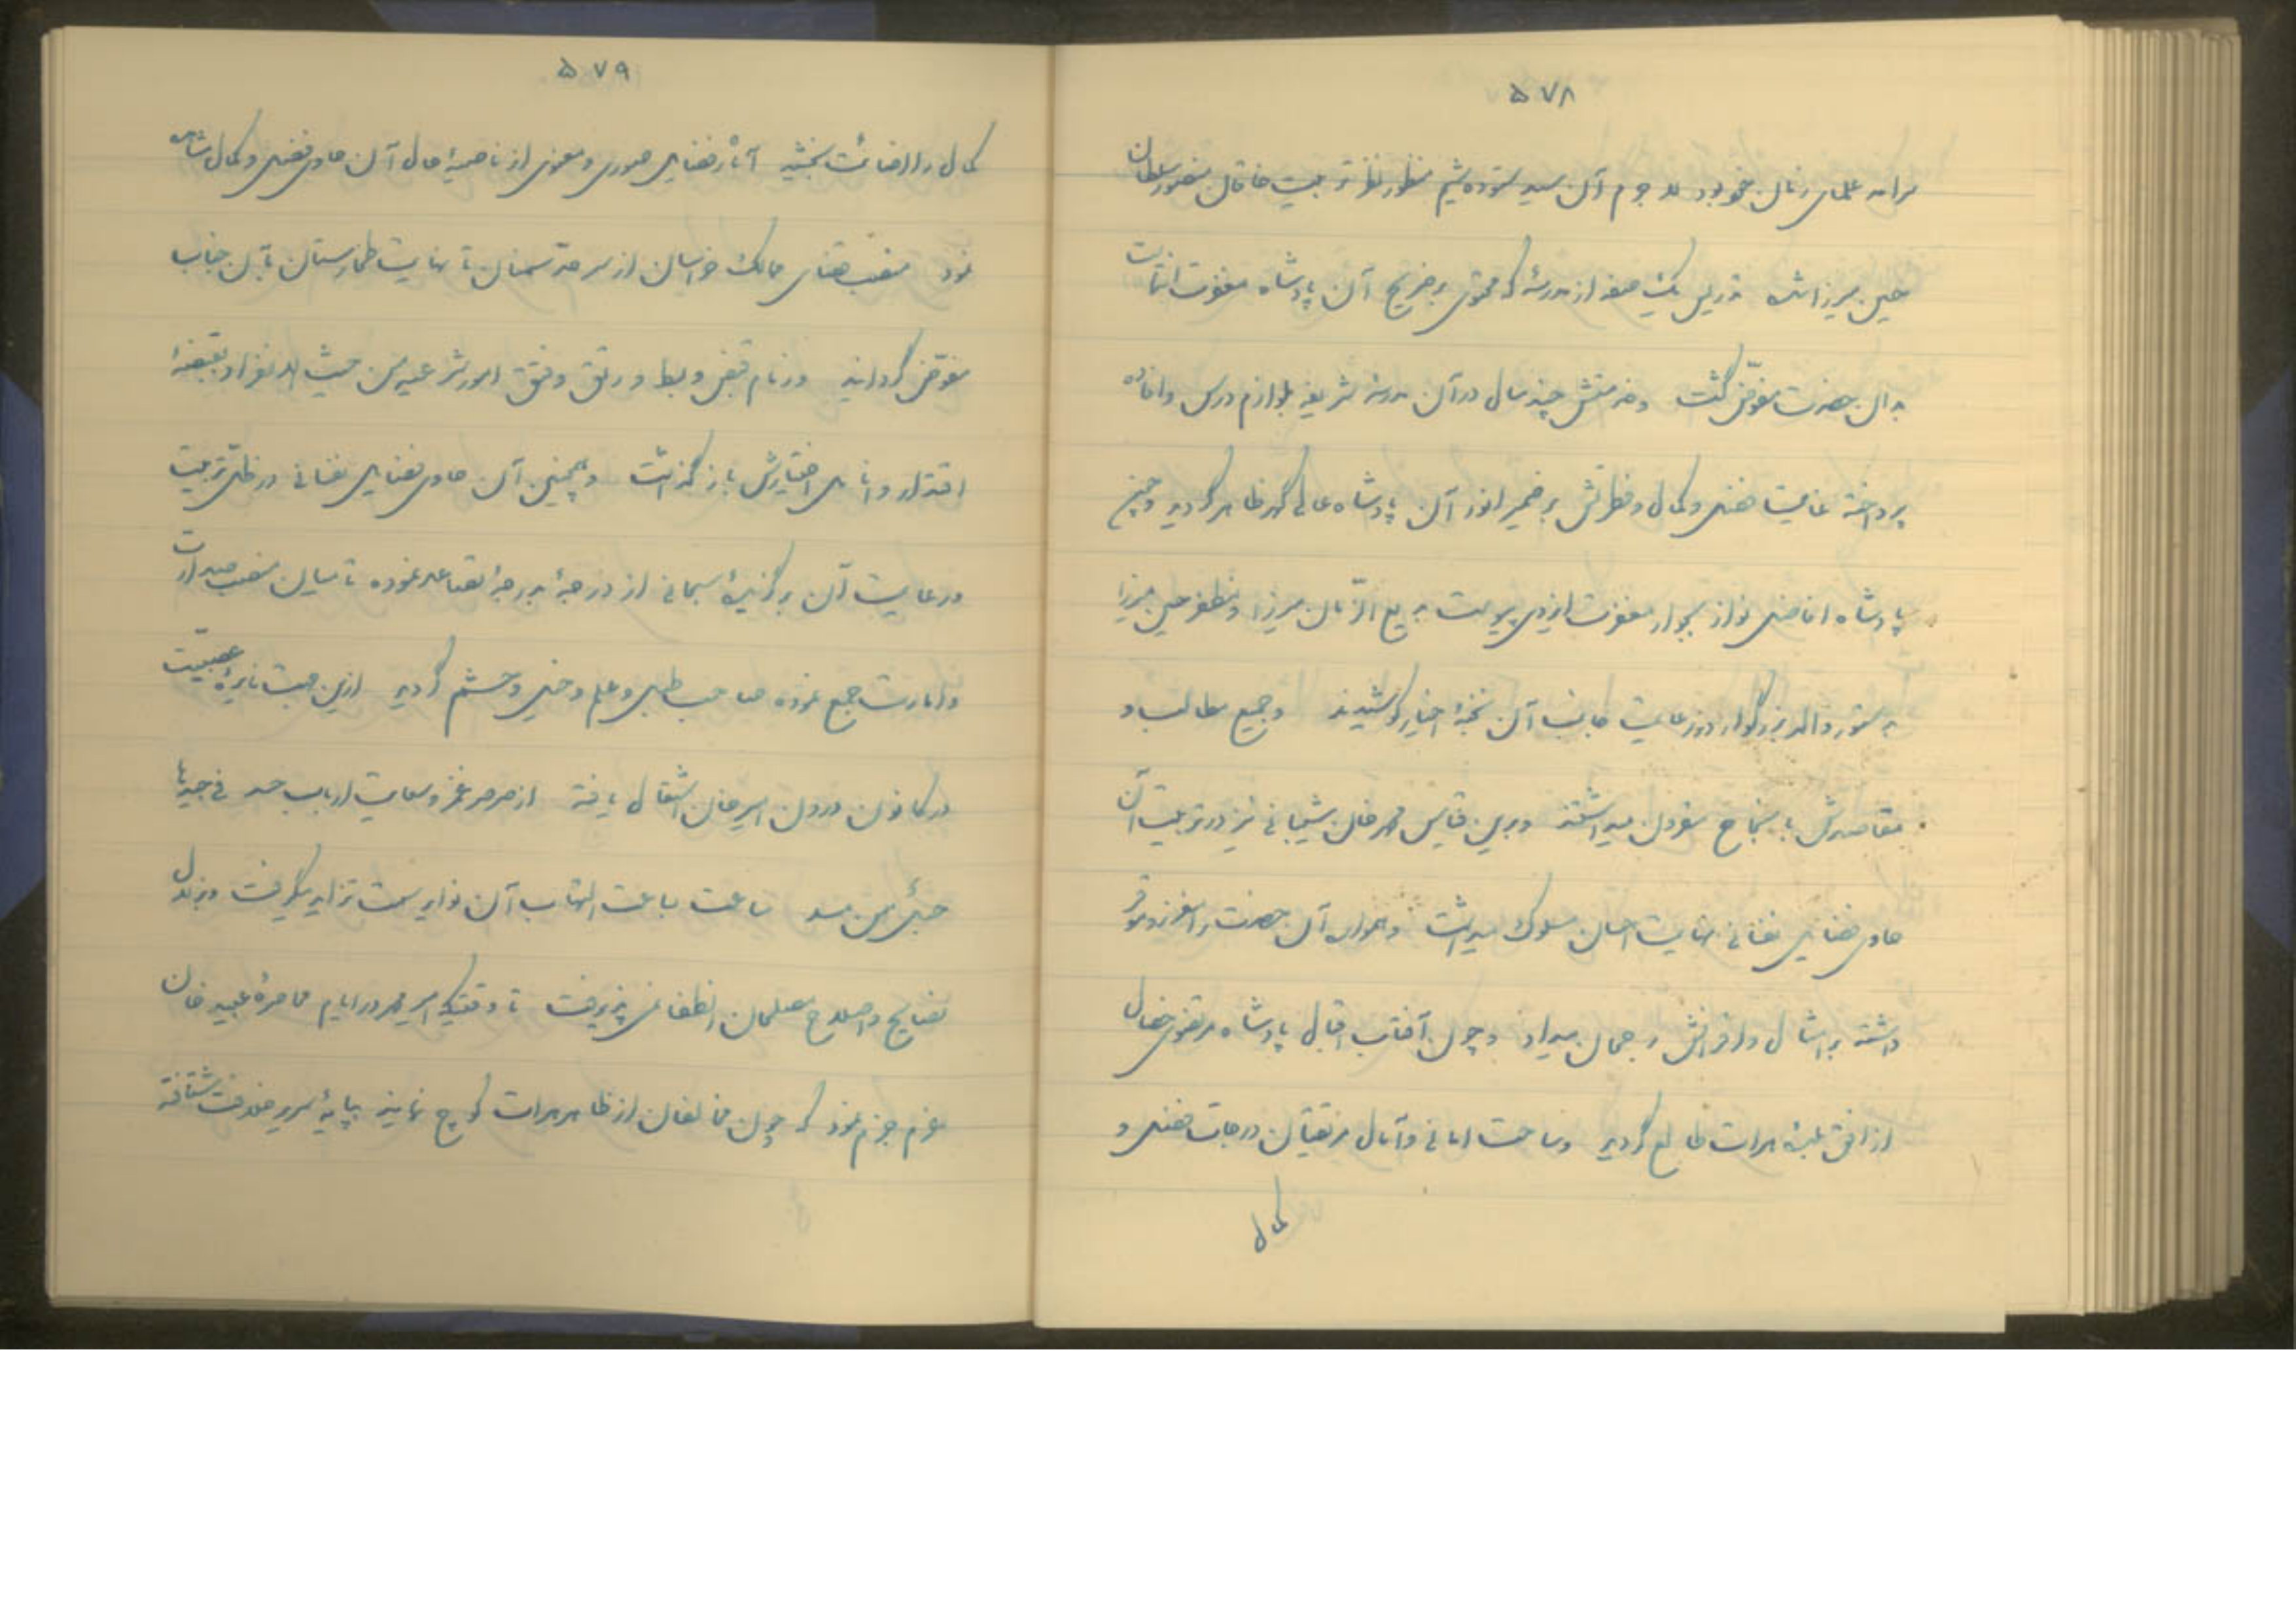 ۵۷۸
سرآمد علمای زمان خود بود لاجرم آن سید ستوده شیم منظور نظر تربیت خاقان منصور سلطان
حسین میرزا شده تدریس یک صفه از مدرسهٔ که محتوی بر ضریح آن پادشاه مغفرت انتماست
بدان حضرت مفوّض گشت و خدمتش چند سال در آن مدرسه شریفه بلوازم درس و افاده
پرداخته غایت فضل و کمال و فطرتش بر ضمیر انور آن پادشاه عالی گهر ظاهر گردید و چون
پادشاه افاضل نواز بجوار مغفرت ایزدی پیوست بدیع الزّمان میرزا و مظفر حسین میرزا
بدستور والد بزرگوار در رعایت جانب آن نخبهٔ اخیار کوشیدند و جمیع مطالب و
مقاصدش بانجاح مقرون میداشتند و برین قیاس محمد خان شیبانی نیز در تربیت آن
حاوی فضایل نفسانی بنهایت احسان سلوک میداشت و همواره آن حضرت را معزز و موقر
داشته بر امثال و اقرانش رجحان میداد و چون آفتاب اقبال پادشاه مرتضوی خصال
از افق بلدهٔ هرات طالع گردید و ساحت امانی و آمال مرتقیان درجات فضل و
کمال
۵۷۹
کمال را اضائت بخشید آثار فضایل صوری و معنوی از ناصیهٔ حال آن حاوی فضل و کمال مشاهده
نمود منصب قضای ممالک خراسان از سرحد سمنان تا نهایت طخارستان بآن جناب
مفوّض گردانید و زمام قبض و بسط و رتق و فتق امور شرعیه من حیث الانفراد بقبضهٔ
اقتدار و انامل اختیارش باز گذاشت و همچنین آن حاوی فضایل نفسانی در ظلّ تربیت
و رعایت آن برگزیدهٔ سبحانی از درجهٔ بدرجهٔ تصاعد نموده تا میان منصب صدارت
و امارت جمع نموده صاحب طبل و علم و خیل و حشم گردید ازین جهت نایرهٔ عصبیت
در کانون درون امیرخان اشتعال یافته از صرصر غمز و سعایت ارباب حسد فی جیدها
حبلٌ من مسد ساعت بساعت التهاب آن نوایر سمت تزاید میگرفت و بزلال
نصایح و اصلاح مصلحان انطفا نمی پذیرفت تا وقتیکه امیر محمد در ایام محاصرهٔ عبید خان
عزم جزم نمود که چون مخالفان از ظاهر هرات کوچ نمایند بپایهٔ سریر خلافت شتافته